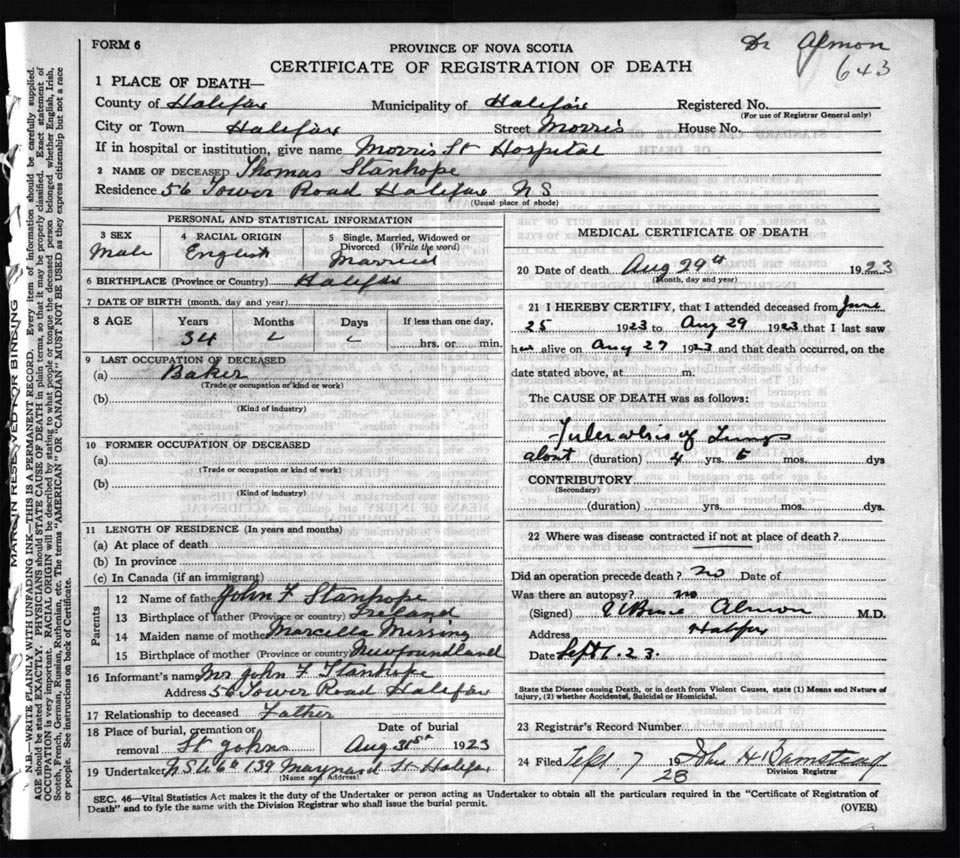 FORM 6
Dr Almon
643
PROVINCE OF NOVA SCOTIA
CERTIFICATE OF REGISTRATION OF DEATH
1 PLACE OF DEATH—
County of Halifax Municipality of Halifax Registered No.
(For use of Registrar General only)
City or Town Halifax Street Morris House No.
If in hospital or institution, give name Morris St Hospital
2 NAME OF DECEASED Thomas Stanhope
Residence 56 Tower Road Halifax N S
(Usual place of abode)
PERSONAL AND STATISTICAL INFORMATION
3 SEX 4 RACIAL ORIGIN 5 Single, Married, Widowed or Divorced (Write the word)
Male English Married
6 BIRTHPLACE (Province or Country) Halifax
7 DATE OF BIRTH (month, day and year)
8 AGE Years Months Days If less than one day,
34 hrs. or min.
9 LAST OCCUPATION OF DECEASED
(a) Baker
(Trade or occupation or kind of work)
(b)
(Kind of industry)
10 FORMER OCCUPATION OF DECEASED
(a)
(Trade or occupation or kind of work)
(b)
(Kind of industry)
11 LENGTH OF RESIDENCE (In years and months)
(a) At place of death
(b) In province
(c) In Canada (if an immigrant)
Parents
12 Name of father John F Stanhope
13 Birthplace of father (Province or country) Ireland
14 Maiden name of mother Marcella Missing
15 Birthplace of mother (Province or country) Newfoundland
16 Informant's name Mr John F Stanhope
Address 56 Tower Road Halifax
17 Relationship to deceased Father
18 Place of burial, cremation or removal St Johns Date of burial Aug 31st 1923
19 Undertaker 139 Maynard St Halifax
(Name and Address)
MEDICAL CERTIFICATE OF DEATH
20 Date of death Aug 29th 1923
(Month, day and year)
21 I HEREBY CERTIFY, that I attended deceased from June
25 1923 to Aug 29 1923 that I last saw
him alive on Aug 27 1923 and that death occurred, on the
date stated above, at m.
The CAUSE OF DEATH was as follows:
Tuberculosis of Lungs
about (duration) 4 yrs. 5 mos. dys
CONTRIBUTORY
(Secondary)
(duration) yrs. mos. dys.
22 Where was disease contracted if not at place of death?
Did an operation precede death? no Date of
Was there an autopsy? no
(Signed) Almon M.D.
Address Halifax
Date Sept 1. 23.
State the Disease causing Death, or in death from Violent Causes, state (1) Means and Nature of
Injury, (2) whether Accidental, Suicidal or Homicidal.
23 Registrar's Record Number
24 Filed Sept 7 19 23 John H Barnstead
Division Registrar
SEC. 46—Vital Statistics Act makes it the duty of the Undertaker or person acting as Undertaker to obtain all the particulars required in the "Certificate of Registration of
Death" and to fyle the same with the Division Registrar who shall issue the burial permit.
(OVER)
MARGIN RESERVED FOR BINDING
N.B.—WRITE PLAINLY WITH UNFADING INK—THIS IS A PERMANENT RECORD. Every item of information should be carefully supplied.
AGE should be stated EXACTLY. PHYSICIANS should STATE CAUSE OF DEATH in plain terms, so that it may be properly classified. Exact statement of
OCCUPATION is very important. RACIAL ORIGIN will be described by stating to what people or tongue the deceased person belonged whether English, Irish,
Scotch, French, German, Russian, Ruthenian, etc. The terms "AMERICAN" OR "CANADIAN" MUST NOT BE USED as they express citizenship but not a race
or people. See instructions on back of Certificate.